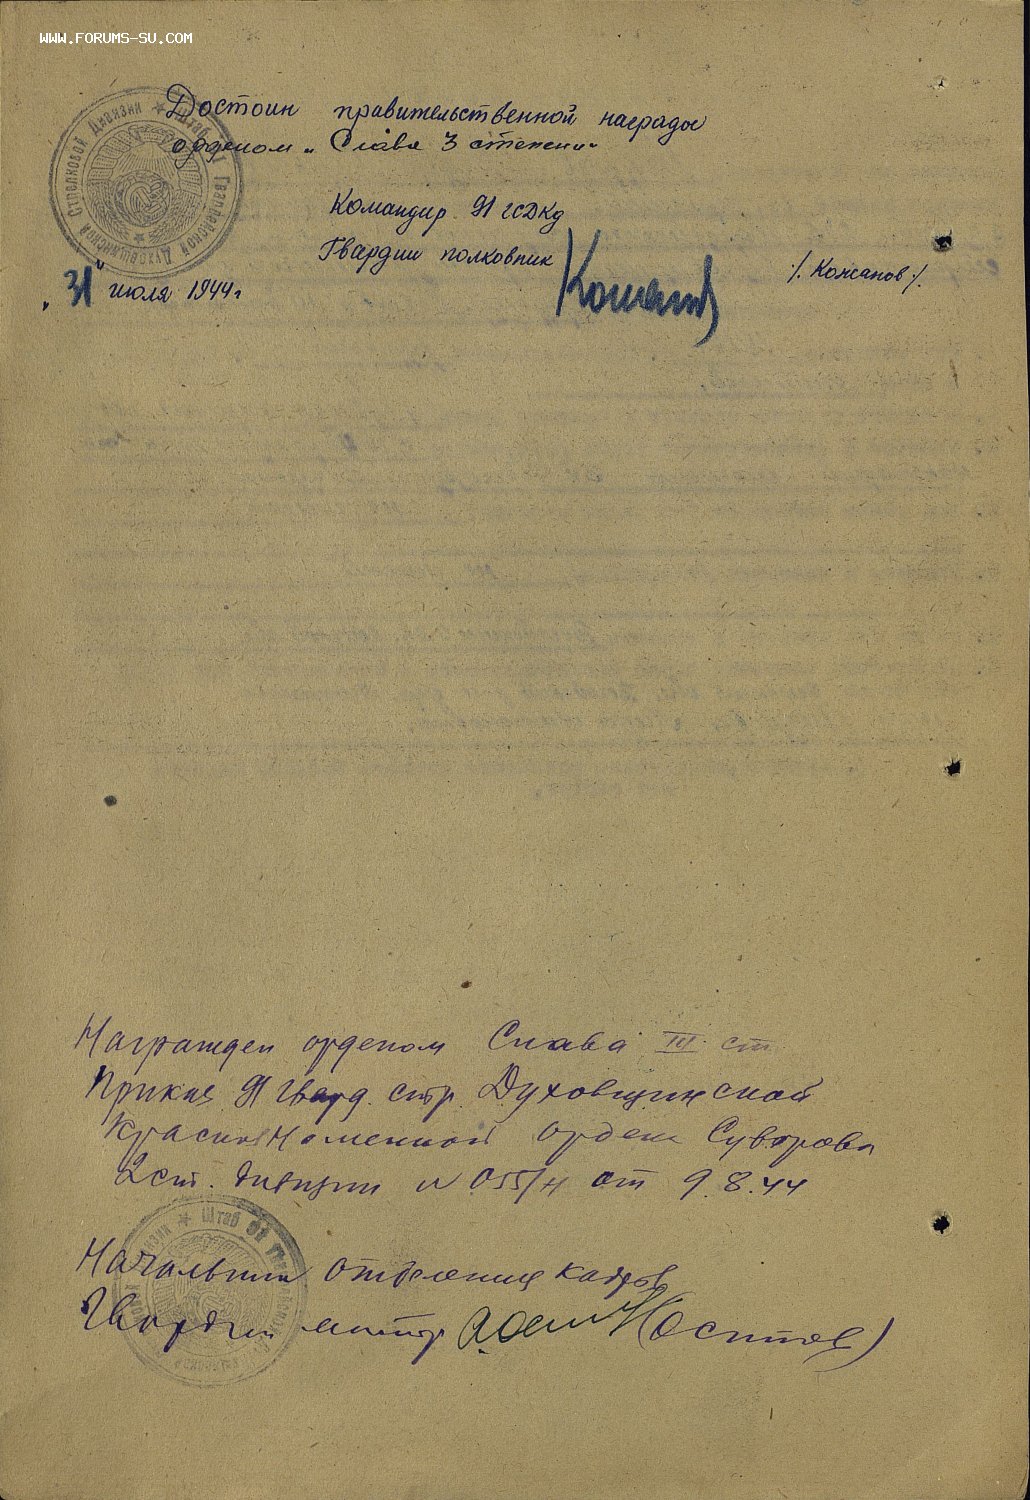 WWW.FORUMS-SU.COM
Достоин правительственной награды
орденом „ Слава 3 степени"
Командир 91 гсДКд
Гвардии полковник
/. Кожанов ./.
„31" июля 1944г
Штаб 91 Гвардейской Духовщинской Стрелковой Дивизии
Награжден орденом Слава III ст
Приказ 91 гвард. стр. Духовщинской
Краснознаменной ордена Суворова
2 ст. дивизии N 055/н от 9.8.44
Штаб
Начальник отделения кадров
Гвардии майор (Осипов)